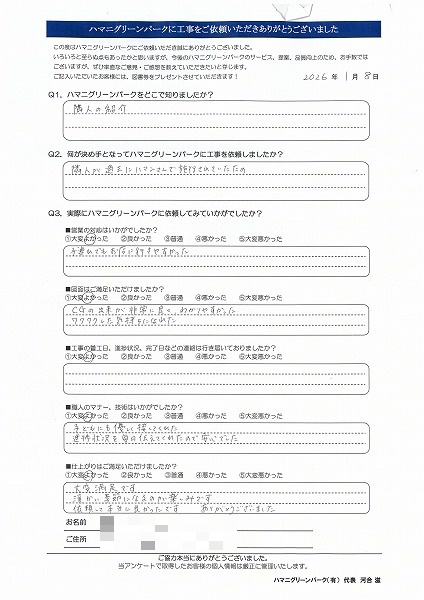 ハマニグリーンパークに工事をご依頼いただきありがとうございました
この度はハマニグリーンパークにご依頼いただき誠にありがとうございました。
いろいろと至らぬ点もあったかと思いますが、今後のハマニグリーンパークのサービス、提案、品質向上のため、お手数では
ございますが、ぜひ率直なご意見・ご感想を教えていただきたいと存じます。
ご記入いただいたお客様には、図書券をプレゼントさせていただきます!
2026年 1月 8日
Q1、ハマニグリーンパークをどこで知りましたか?
隣人の紹介
Q2、何が決め手となってハマニグリーンパークに工事を依頼しましたか?
隣人が過去にハマニさんで されていたため
Q3、実際にハマニグリーンパークに依頼してみていかがでしたか?
■営業の対応はいかがでしたか?
①大変よかった ②良かった ③普通 ④悪かった ⑤大変悪かった
子連れでもお店に行きやすかった
■図面はご満足いただけましたか?
①大変よかった ②良かった ③普通 ④悪かった ⑤大変悪かった
CGの出来が非常に良く、わかりやすかった
ワクワクした気持ちになれた
■工事の着工日、進捗状況、完了日などの連絡は行き届いておりましたか?
①大変よかった ②良かった ③普通 ④悪かった ⑤大変悪かった
■職人のマナー、技術はいかがでしたか?
①大変よかった ②良かった ③普通 ④悪かった ⑤大変悪かった
子どもにも優しく接してくれた
進捗状況を毎日伝えてくれたので安心でした
■仕上がりはご満足いただけましたか?
①大変よかった ②良かった ③普通 ④悪かった ⑤大変悪かった
大変満足です
暖かい季節になるのが楽しみです
依頼して本当に良かったです ありがとうございました
お名前
ご住所
ご協力本当にありがとうございました。
当アンケートで取得したお客様の個人情報は厳正に管理いたします。
ハマニグリーンパーク(有) 代表 河合 滋